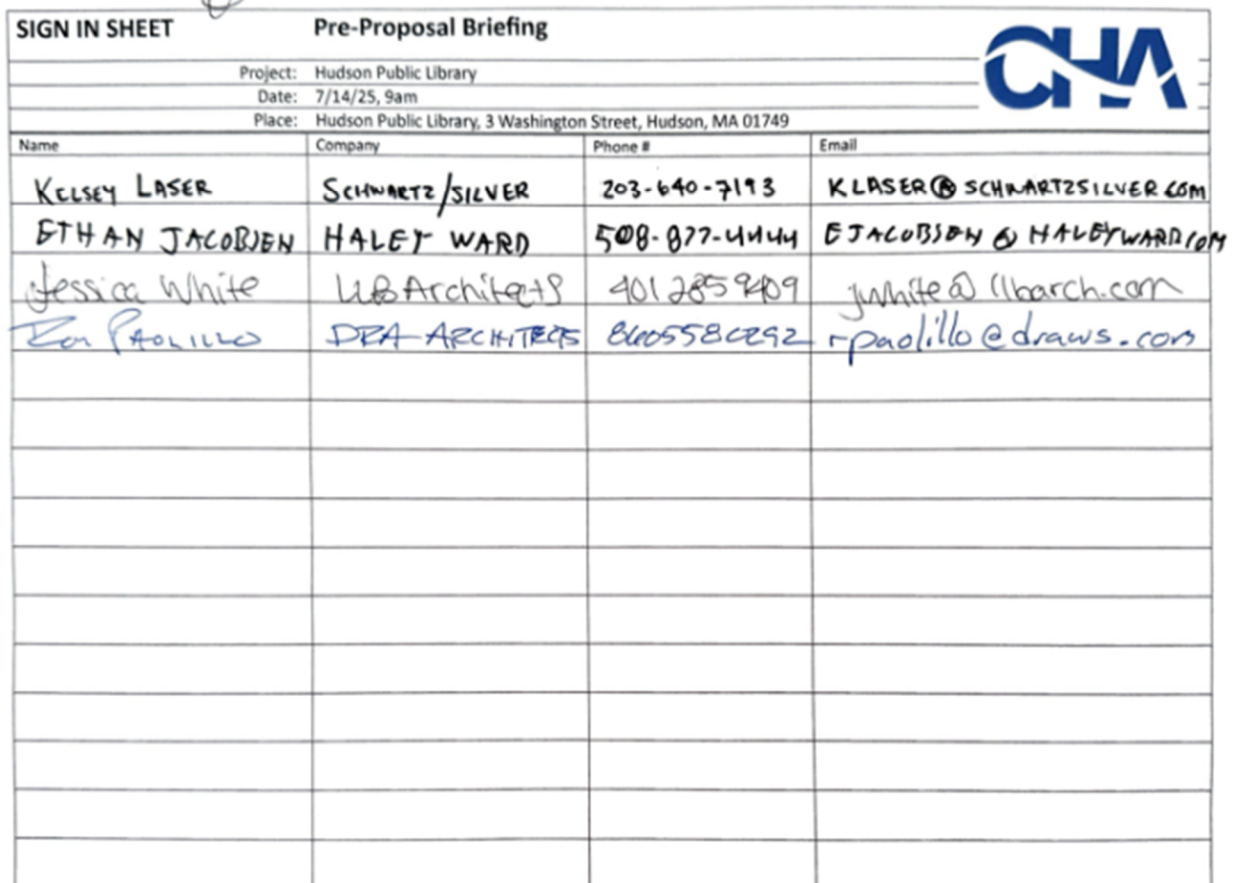 SIGN IN SHEET Pre-Proposal Briefing
CHA
Project: Hudson Public Library
Date: 7/14/25, 9am
Place: Hudson Public Library, 3 Washington Street, Hudson, MA 01749
Name Company Phone # Email
KELSEY LASER SCHWARTZ/SILVER 203-640-7193 KLASER@SCHWARTZSILVER.COM
ETHAN JACOBSEN HALEY WARD 508-877-4444 EJACOBSEN@HALEYWARD.COM
Jessica White LLBArchitects 4012859409 jwhite@llbarch.com
PAOLILLO DRA ARCHITECTS rpaolillo@draws.com